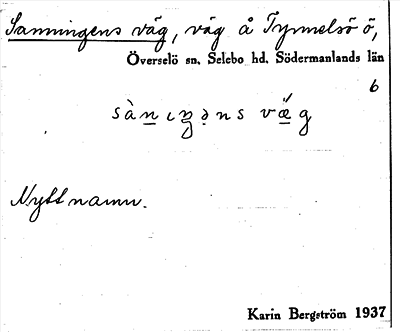 Sanningens väg, väg å Tynnelsö ö,
Överselö sn. Selebo hd. Södermanlands län
6
sànıŋəns vǽg
Nytt namn.
Karin Bergström 1937